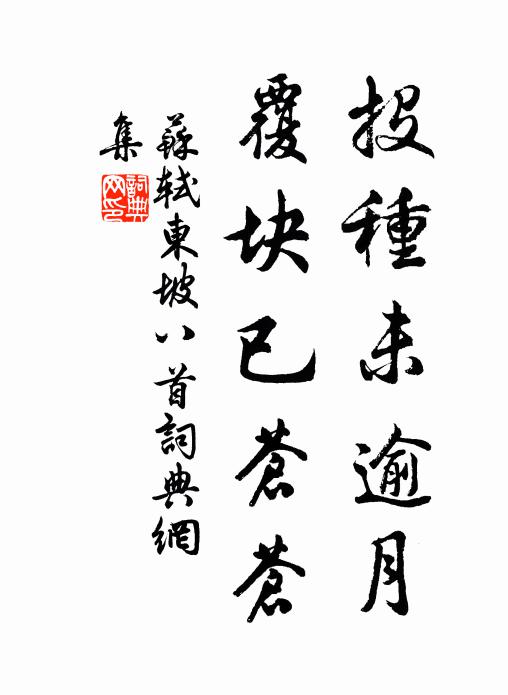 投種未逾月
覆块已蒼蒼
蘇軾東坡八首詞典網
集
詞典
网印